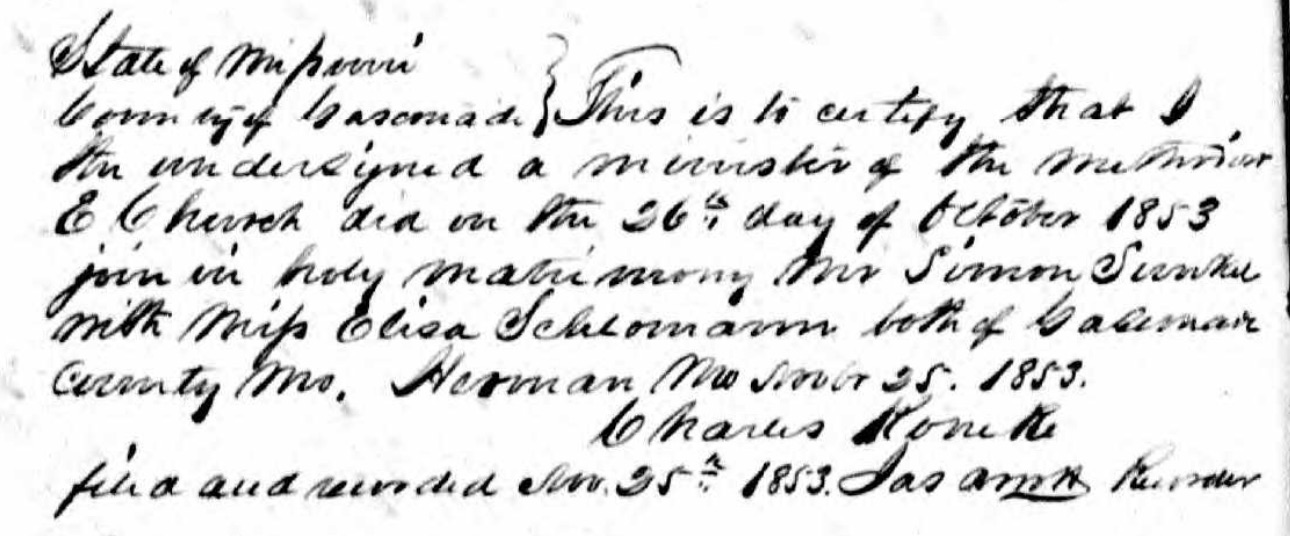 State of Missouri
County of Gasconade } This is to certify that I
the undersigned a minister of the Methodist
E Church did on the 26th day of October 1853
join in holy matrimony Mr Simon
with Miss Elisa Schlomann both of Gasconade
County Mo. Herman Mo Novbr 25. 1853.
Charles Koneke
filed and recorded Nov. 25th 1853. Jas Recorder